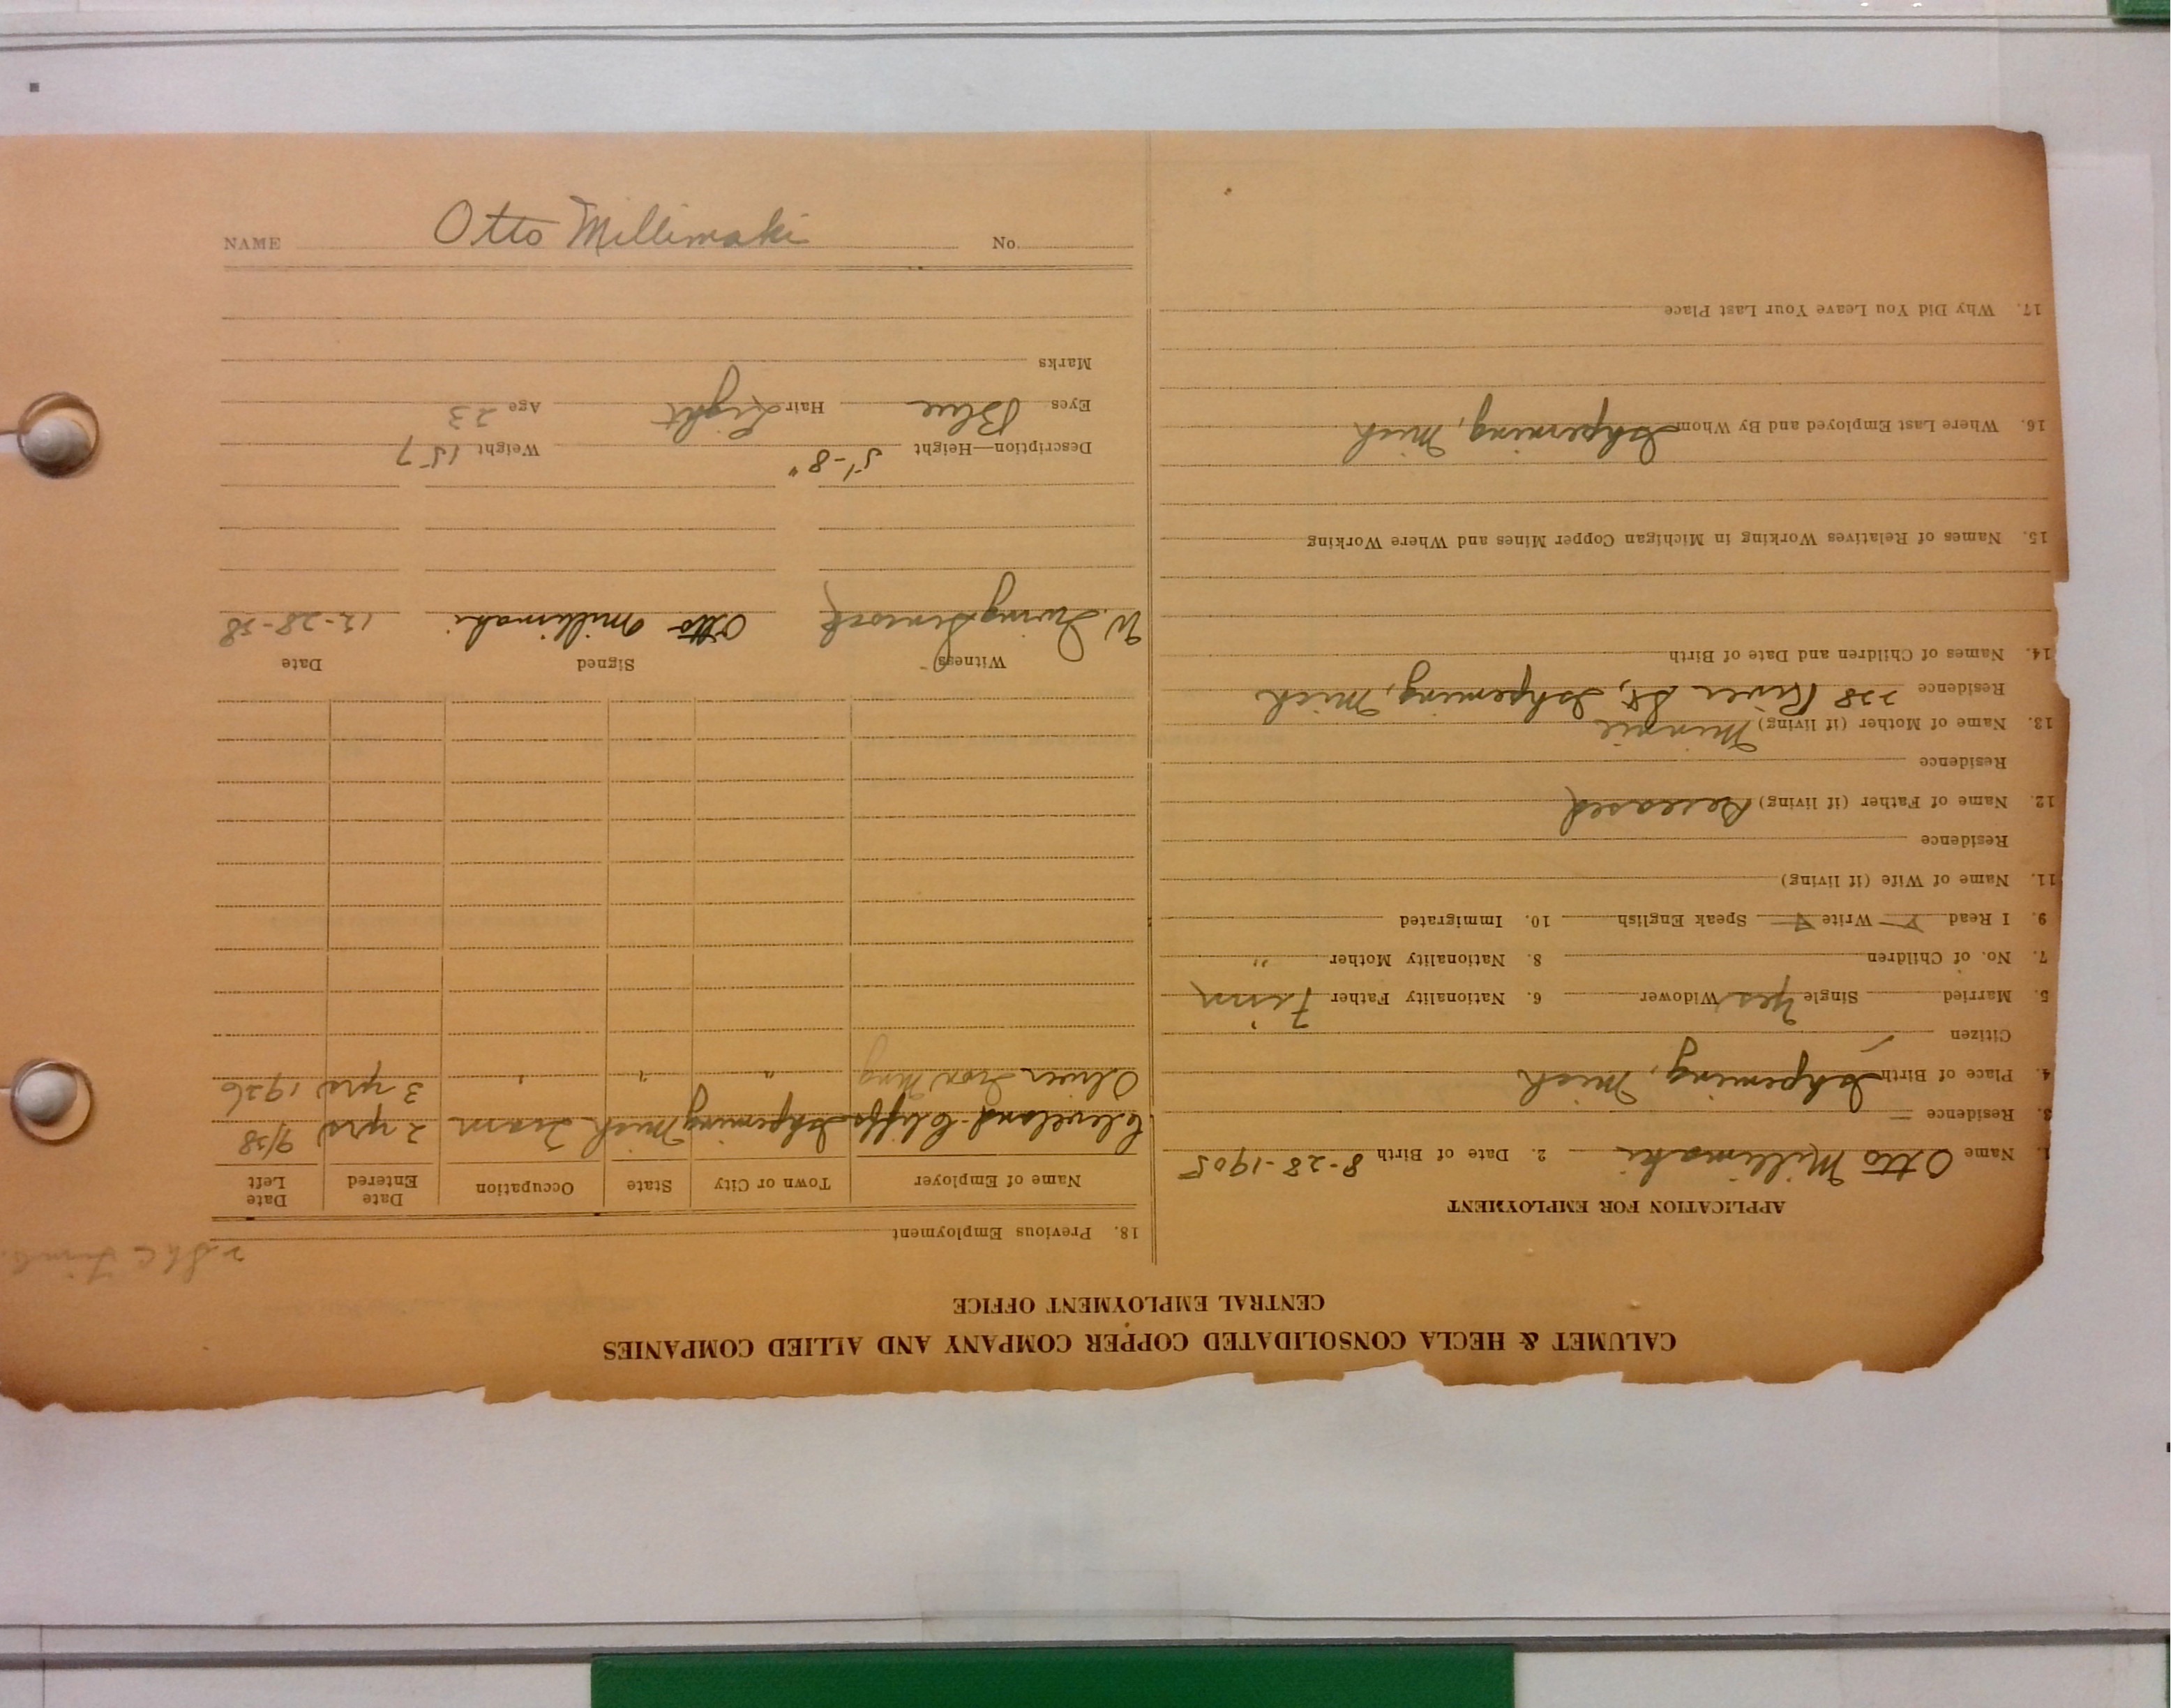 CALUMET & HECLA CONSOLIDATED COPPER COMPANY AND ALLIED COMPANIES
CENTRAL EMPLOYMENT OFFICE
APPLICATION FOR EMPLOYMENT
1. Name Otto Millimaki 2. Date of Birth 8-28-1905
3. Residence
4. Place of Birth Ishpeming, Mich
Citizen
5. Married Single Yes Widower 6. Nationality Father Finn
7. No. of Children 8. Nationality Mother "
9. I Read Write Speak English 10. Immigrated
11. Name of Wife (if living)
Residence
12. Name of Father (if living) Deceased
Residence
13. Name of Mother (if living) Minnie
Residence 228 River St, Ishpeming, Mich
14. Names of Children and Date of Birth
15. Names of Relatives Working in Michigan Copper Mines and Where Working
16. Where Last Employed and By Whom Ishpeming, Mich
17. Why Did You Leave Your Last Place
18. Previous Employment
Name of Employer Town or City State Occupation Date Entered Date Left
Cleveland Cliffs Ishpeming Mich Tram 2 yrs 9/38
Oliver Iron Mng " " " 3 yrs 1926
Witness Signed Date
Otto Millimaki 12-28-38
Description—Height 5'-8" Weight 157
Eyes Blue Hair Light Age 23
Marks
NAME Otto Millimaki No.